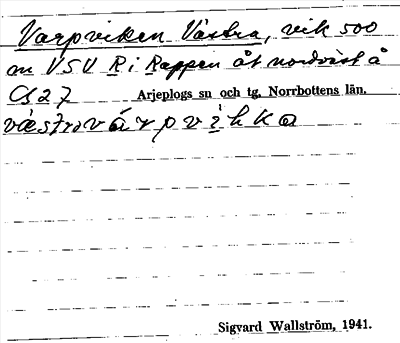 Varpviken Västra, vik 500
m VSV R i Rappen åt nordväst å
C527 Arjeplogs sn och tg. Norrbottens län.
væstrovárpvihka
Sigvard Wallström, 1941.